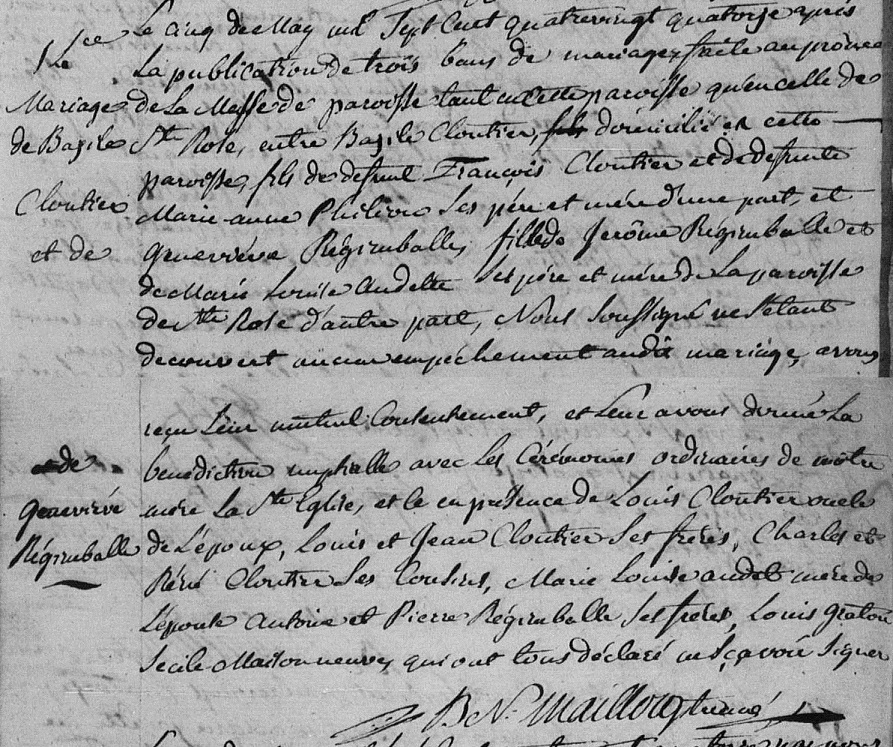 Le cinq de May mil Sept Cent quatrevingt quatorze après
La publication de trois bans de mariage faite au prône
de La Messe de paroisse tant en Cette paroisse qu'en celle de
Ste Rose, entre Basile Cloutier, fils domicilié en cette
paroisse, fils de defunt François Cloutier et de defunte
Marie-anne Philion Ses père et mère d'une part, et
geneviève Régimballe, fille de Jerôme Régimballe et
de Marie Louise Audette Ses père et mère de La paroisse
de Ste Rose d'autre part, Nous Soussigné ne S'etant
decouvert aucun empêchement audit mariage, avons
reçu Leur mutuel Consentement, et Leur avons donné La
bénédiction nuptialle avec Les Cérémonies ordinaires de nôtre
mère La Ste Eglise, et ce en présence de Louis Cloutier oncle
de L'époux, Louis et Jean Cloutier Ses frères, Charles et
Réné Cloutier Ses Cousins, Marie Louise audet mère de
L'épouse Antoine et Pierre Régimballe Ses frères, Louis graton
Secile Maisonneuve, qui ont tous déclaré ne Sçavoir Signer
B N. Mailloux
Le
Mariage
de Basile
Cloutier
et de
de
Geneviève
Régimballe